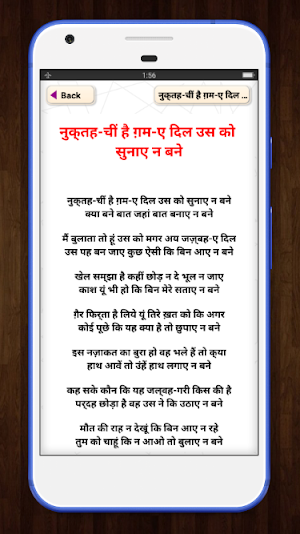 1:56
Back
नुक्तह-चीं है ग़म-ए दिल ...
नुक्तह-चीं है ग़म-ए दिल उस को
सुनाए न बने
नुक्तह-चीं है ग़म-ए दिल उस को सुनाए न बने
क्या बने बात जहां बात बनाए न बने
मैं बुलाता तो हूं उस को मगर अय जज़्बह-ए दिल
उस पह बन जाए कुछ ऐसी कि बिन आए न बने
खेल सम्झा है कहीं छोड़ न दे भूल न जाए
काश यूं भी हो कि बिन मेरे सताए न बने
ग़ैर फिर्ता है लिये यूं तिरे ख़त को कि अगर
कोई पूछे कि यह क्या है तो छुपाए न बने
इस नज़ाकत का बुरा हो वह भले हैं तो क्या
हाथ आवें तो उंहें हाथ लगाए न बने
कह सके कौन कि यह जल्वह-गरी किस की है
पर्दह छोड़ा है वह उस ने कि उठाए न बने
मौत की राह न देखूं कि बिन आए न रहे
तुम को चाहूं कि न आओ तो बुलाए न बने